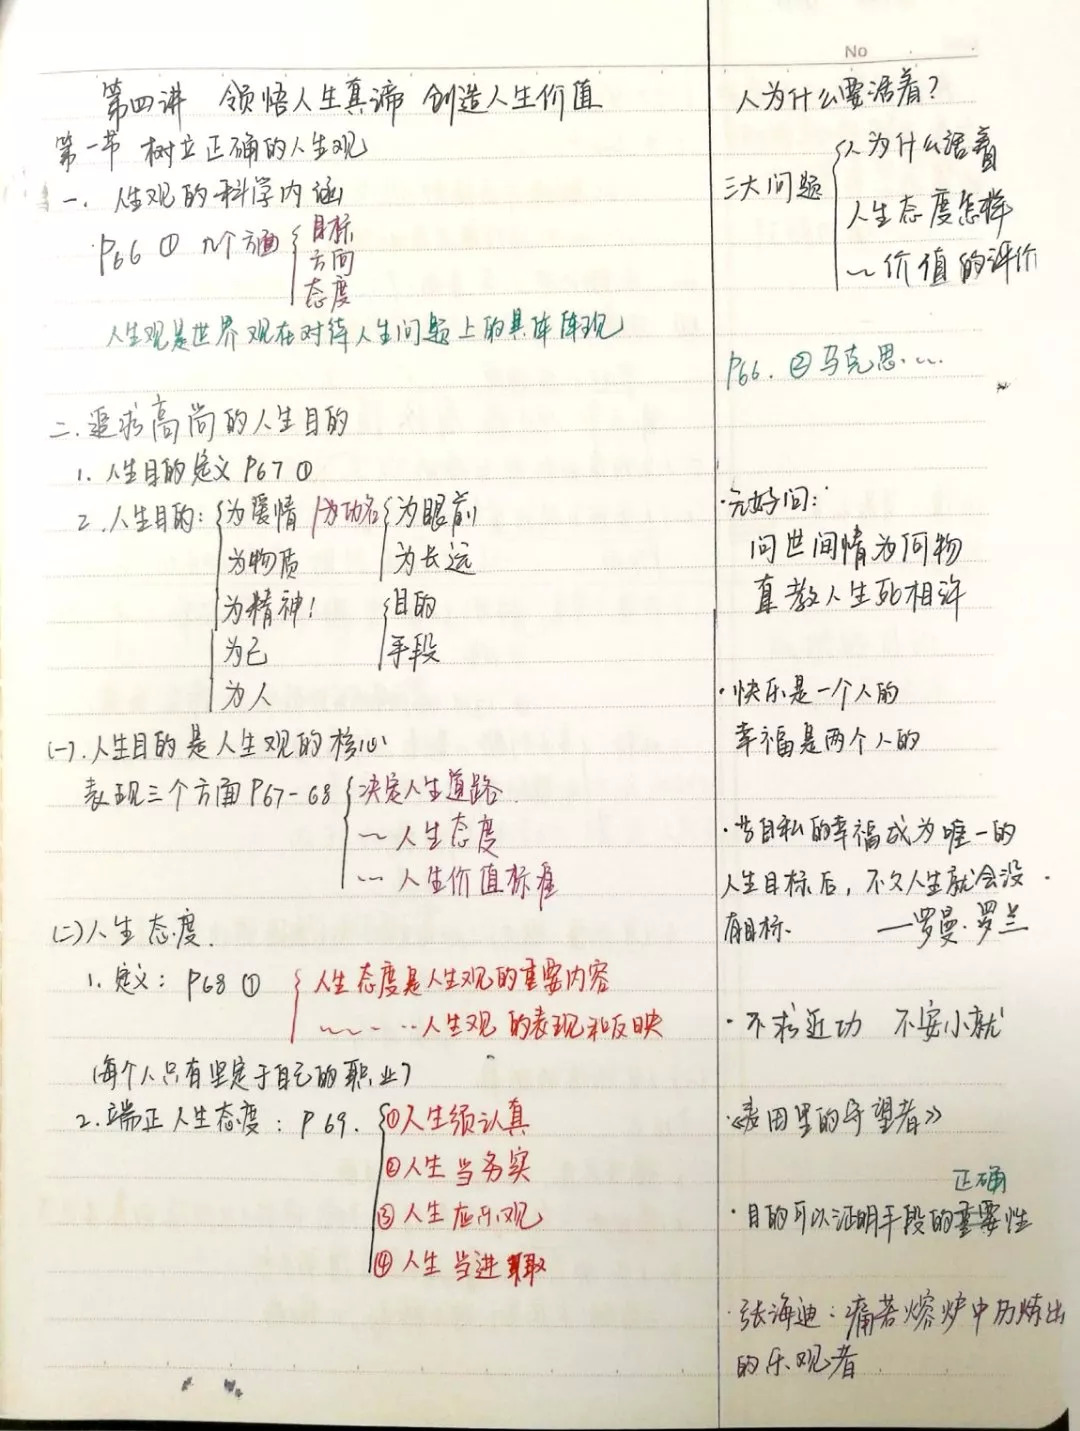 No
第四讲 领悟人生真谛 创造人生价值
第一节 树立正确的人生观
一. 人生观的科学内涵
P66 ① 几个方面
目标
方向
态度
人生观是世界观在对待人生问题上的具体体现
二.追求高尚的人生目的
1. 人生目的定义 P67 ①
2.人生目的: 为爱情 为功名 为眼前
为物质 为长远
为精神! 目的
为己 手段
为人
(一).人生目的是人生观的核心
表现三个方面P67-68 决定人生道路
~ 人生态度
~ 人生价值标准
(二)人生态度.
1. 定义: P68 ① 人生态度是人生观的重要内容
~~···人生观的表现和反映
(每个人只有坚定于自己的职业)
2.端正人生态度: P69. ①人生须认真
②人生当务实
③人生应乐观
④人生当进取
人为什么要活着?
三大问题
人为什么活着
人生态度怎样
~价值的评价
P66. ②马克思...
·元好问:
问世间情为何物
直教人生死相许
·快乐是一个人的
幸福是两个人的
·当自私的幸福成为唯一的
人生目标后,不久人生就会没
有目标.
—罗曼·罗兰
·不求近功 不安小就
·《麦田里的守望者》
正确
·目的可以证明手段的重要性
·张海迪:痛苦熔炉中历炼出
的乐观者